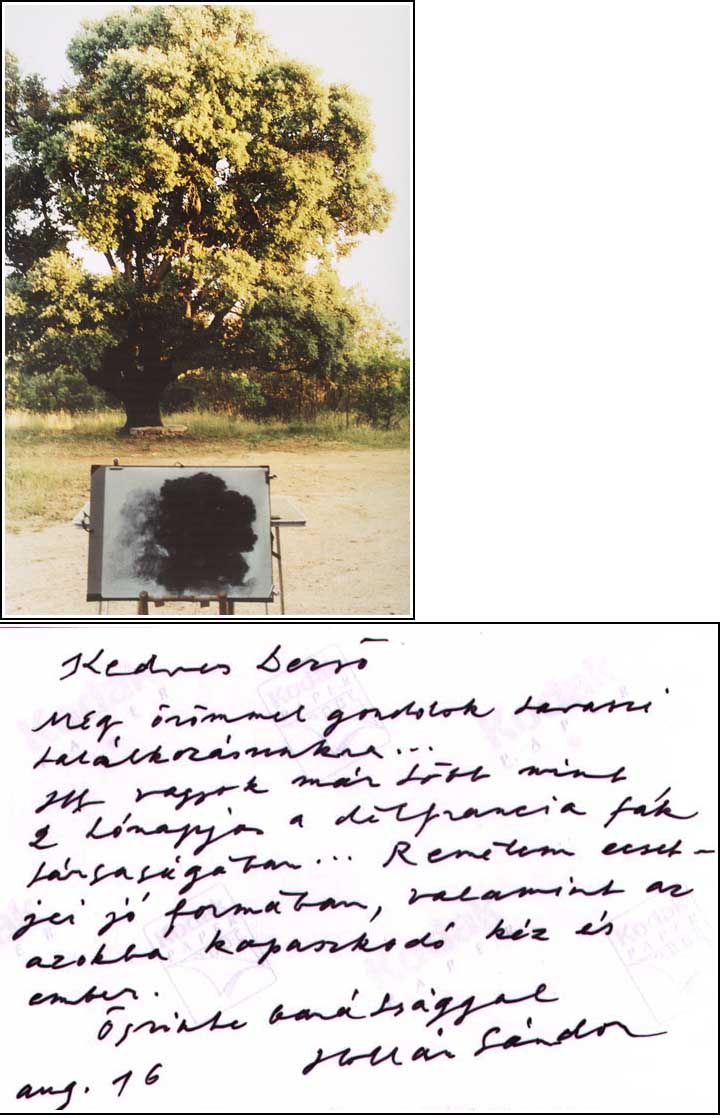 Kedves Dezső
Még örömmel gondolok tavaszi
találkozásunkra...
Itt vagyok már több mint
2 hónapja a délfrancia fák
társaságában... Remélem ecset-
jei jó formában, valamint az
azokba kapaszkodó kéz és
ember.
Őszinte barátsággal
Hollán Sándor
aug. 16